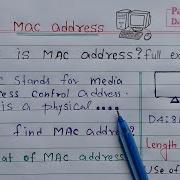 MAC address
is MAC address? full
Stands for media
ress Control Address.
is a physical ....
find MAC addre
at of MAC address
Pa
Da
D4:3
Length
Use of